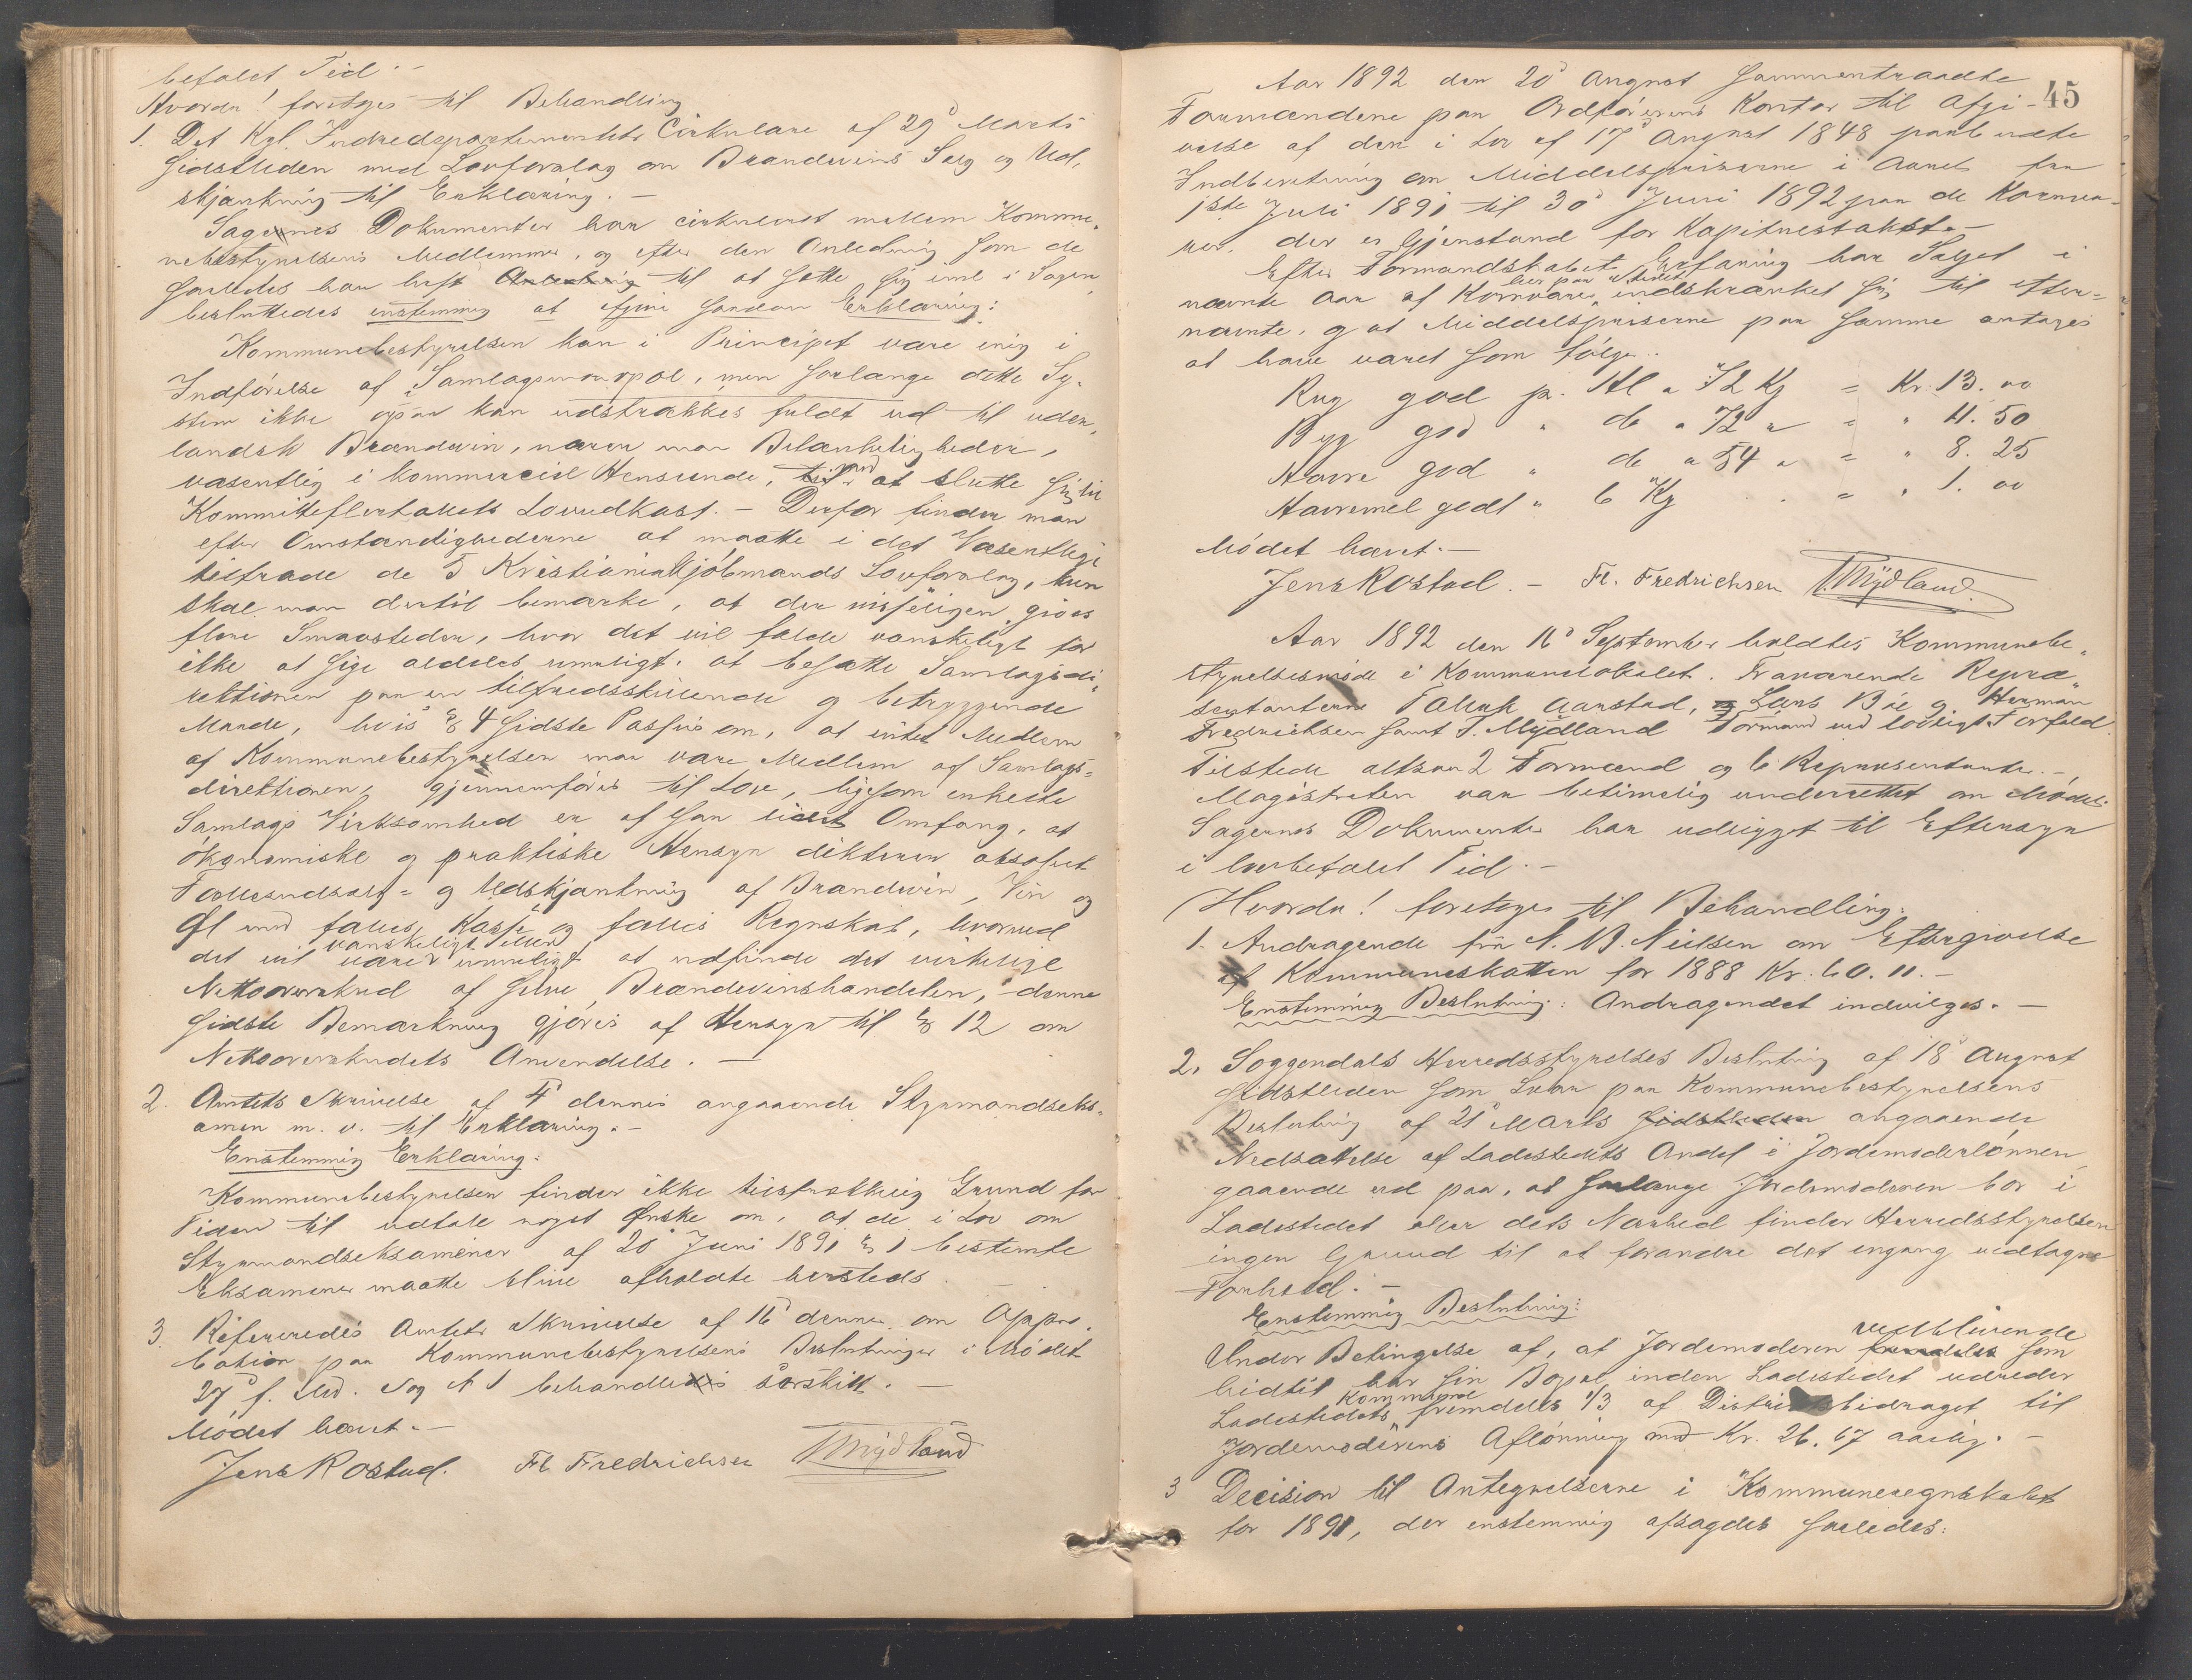 befalet Tid. —
Hvorda! foretoges til Behandling
1. Det Kgl. Indredepartementets Cirkulære af 29d Marts
sidstleden med Lovforslag om Brændevins Salg og Ud-
skjænkning til Erklæring. —
Sagernes Dokumenter har cirkuleret mellem Kommu-
nebestyrelsens Medlemmer, og efter den Anledning som de
saaledes har havt Anledning til at sætte sig ind i Sagen,
besluttedes enstemmig at afgive saadan Erklæring:
Kommunebestyrelsen kan i Principet være enig i
Indførelse af Samlagsmonopol, men saalænge dette Sy-
stem ikke ogsaa kan udstrækkes fuldt ud til uden-
landsk Brændevin, nærer man Betænkeligheder,
væsentlig i kommerciel Henseende, til ved at slutte sig til
Kommiteflertallets Lovudkast. — Derfor finder man
efter Omstændighederne at maatte i det Væsentlige
tiltræde de 5 Kristianiakjøbmænds Lovforslag, kun
skal man dertil bemærke, at der visselligen gives
flere Smaasteder, hvor det vil falde vanskeligt for
ikke at sige aldeles umuligt, at besætte Samlagsdi-
rektionen paa en tilfredsstillende og betryggende
Maade, hvis § 4 sidste Passus om, at intet Medlem
af Kommunebestyrelsen maa være Medlem af Samlags-
direktionen, gjennemføres til Lov, ligesom enkelte
Samlags Virksomhed er af saa lidet Omfang, at
økonomiske og praktiske Hensyn dikterer absolut
Fællesudsalg- og Udskjænkning af Brændevin, Vin og
Øl med fælles Kasse og fælles Regnskab, hvorved
det vil være vanskeligt eller umuligt at udfinde det virkelige
Nettooverskud af selve Brændevinshandelen, denne
sidste Bemærkning gjøres af Hensyn til § 12 om
Nettooverskudets Anvendelse. —
2. Amtets Skrivelse af 4d dennes angaaende Styrmandseks-
amen m. v. til Erklæring. —
Enstemmig Erklæring:
Kommunebestyrelsen finder ikke tilstrækkelig Grund for
Tiden til at udtale noget Ønske om, at de i Lov om
Styrmandseksamener af 20d Juni 1891 § 1 bestemte
Eksamener maatte blive afholdte hersteds. —
3. Refereredes Amtets Skrivelse af 16d dennes om Appro-
bation paa Kommunebestyrelsens Beslutninger i Mødet
27d f. Md. Sag N 1 behandledes særskilt. —
Mødet hævet. —
Jens Rostad. Fl. Fredrichsen T Mydland
45
Aar 1892 den 20d August sammentraadte
Formændene paa Ordførerens Kontor til Afgi-
velse af den i Lov af 17d August 1848 paabudte
Indberetning om Middelspriserne i Aaret fra
1ste Juli 1891 til 30d Juni 1892 paa de Kornva-
rer, der er Gjenstand for Kapitelstakst. —
Efter Formandskabets Erfaring har Salget i
nævnte Aar af Kornvarer her paa Stedet indskrænket sig til efter-
nævnte, og at Middelspriserne paa samme antages
at have været som følger:
Rug god pr. Hl a 72 Kg = Kr. 13. 00
Byg god " do " 72 " = " 11. 50
Havre god " do " 54 " = " 8. 25
Havremel godt " 6 Kg . . = " 1. 00
Mødet hævet. —
Jens Rostad. — Fl. Fredrichsen T. Mydland.
Aar 1892 den 16d September holdtes Kommunebe-
styrelsesmøde i Kommunelokalet. Fraværende Repræ-
sentanterne Aanstad, Lars Bøe og Herman
Fredrichsen samt T. Mydland Formand ved lovligt Forfald.
Tilstede altsaa 2 Formænd og 6 Repræsentanter. —
Magistraten var betimelig underrettet om Mødet.
Sagernes Dokumenter har udligget til Eftersyn
i lovbefalet Tid. —
Hvorda! foretoges til Behandling:
1. Andragende fra N. B. Nielsen om Eftergivelse
af Kommuneskatten for 1888 Kr. 60. 11. —
Enstemmig Beslutning: Andragendet indvilges. —
2. Soggendals Herredsstyrelses Beslutning af 18d August
sidstleden som Svar paa Kommunebestyrelsens
Beslutning af 21d Marts sidstleden angaaende
Nedsættelse af Ladestedets Andel i Jordemoderlønnen
gaaende ud paa, at saalænge Jordemoderen bor i
Ladestedet eller dets Nærhed finder Herredsstyrelsen
ingen Grund til at forandre det engang vedtagne
Forhold. —
Enstemmig Beslutning:
Under Betingelse af, at Jordemoderen fremdeles vedblivende som
hidtil har sin Bopæl inden Ladestedet udreder
Ladestedets Kommune fremdeles 1/3 af Distriktsbidraget til
Jordemoderens Aflønning med Kr. 26. 67 aarlig. —
3 Decision til Antegnelserne i Kommuneregnskabet
for 1891, der enstemmig afsagdes saaledes: